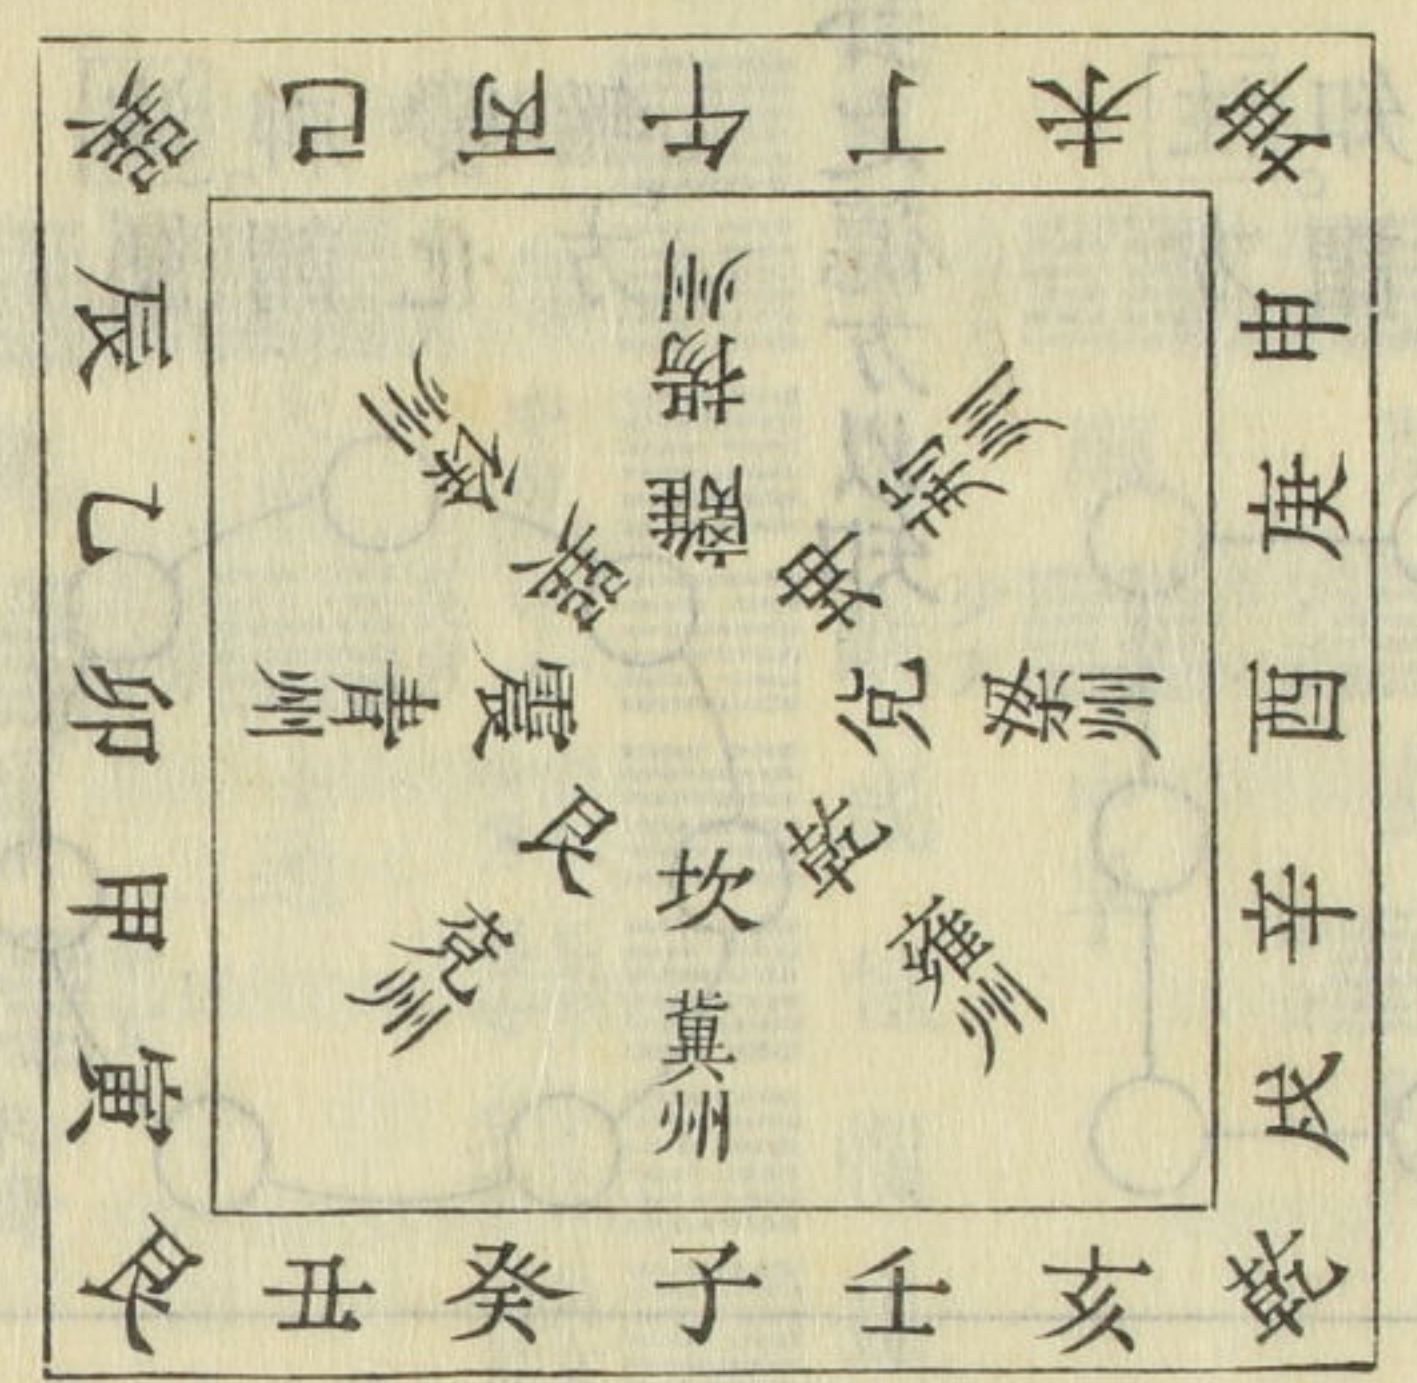 巽巳丙午丁未坤
申庚酉辛戌
乾亥壬子癸丑艮
寅甲卯乙辰
離
揚州
坤
荊州
兌
梁州
乾
雍州
坎
冀州
艮
兗州
震
青州
巽
徐州